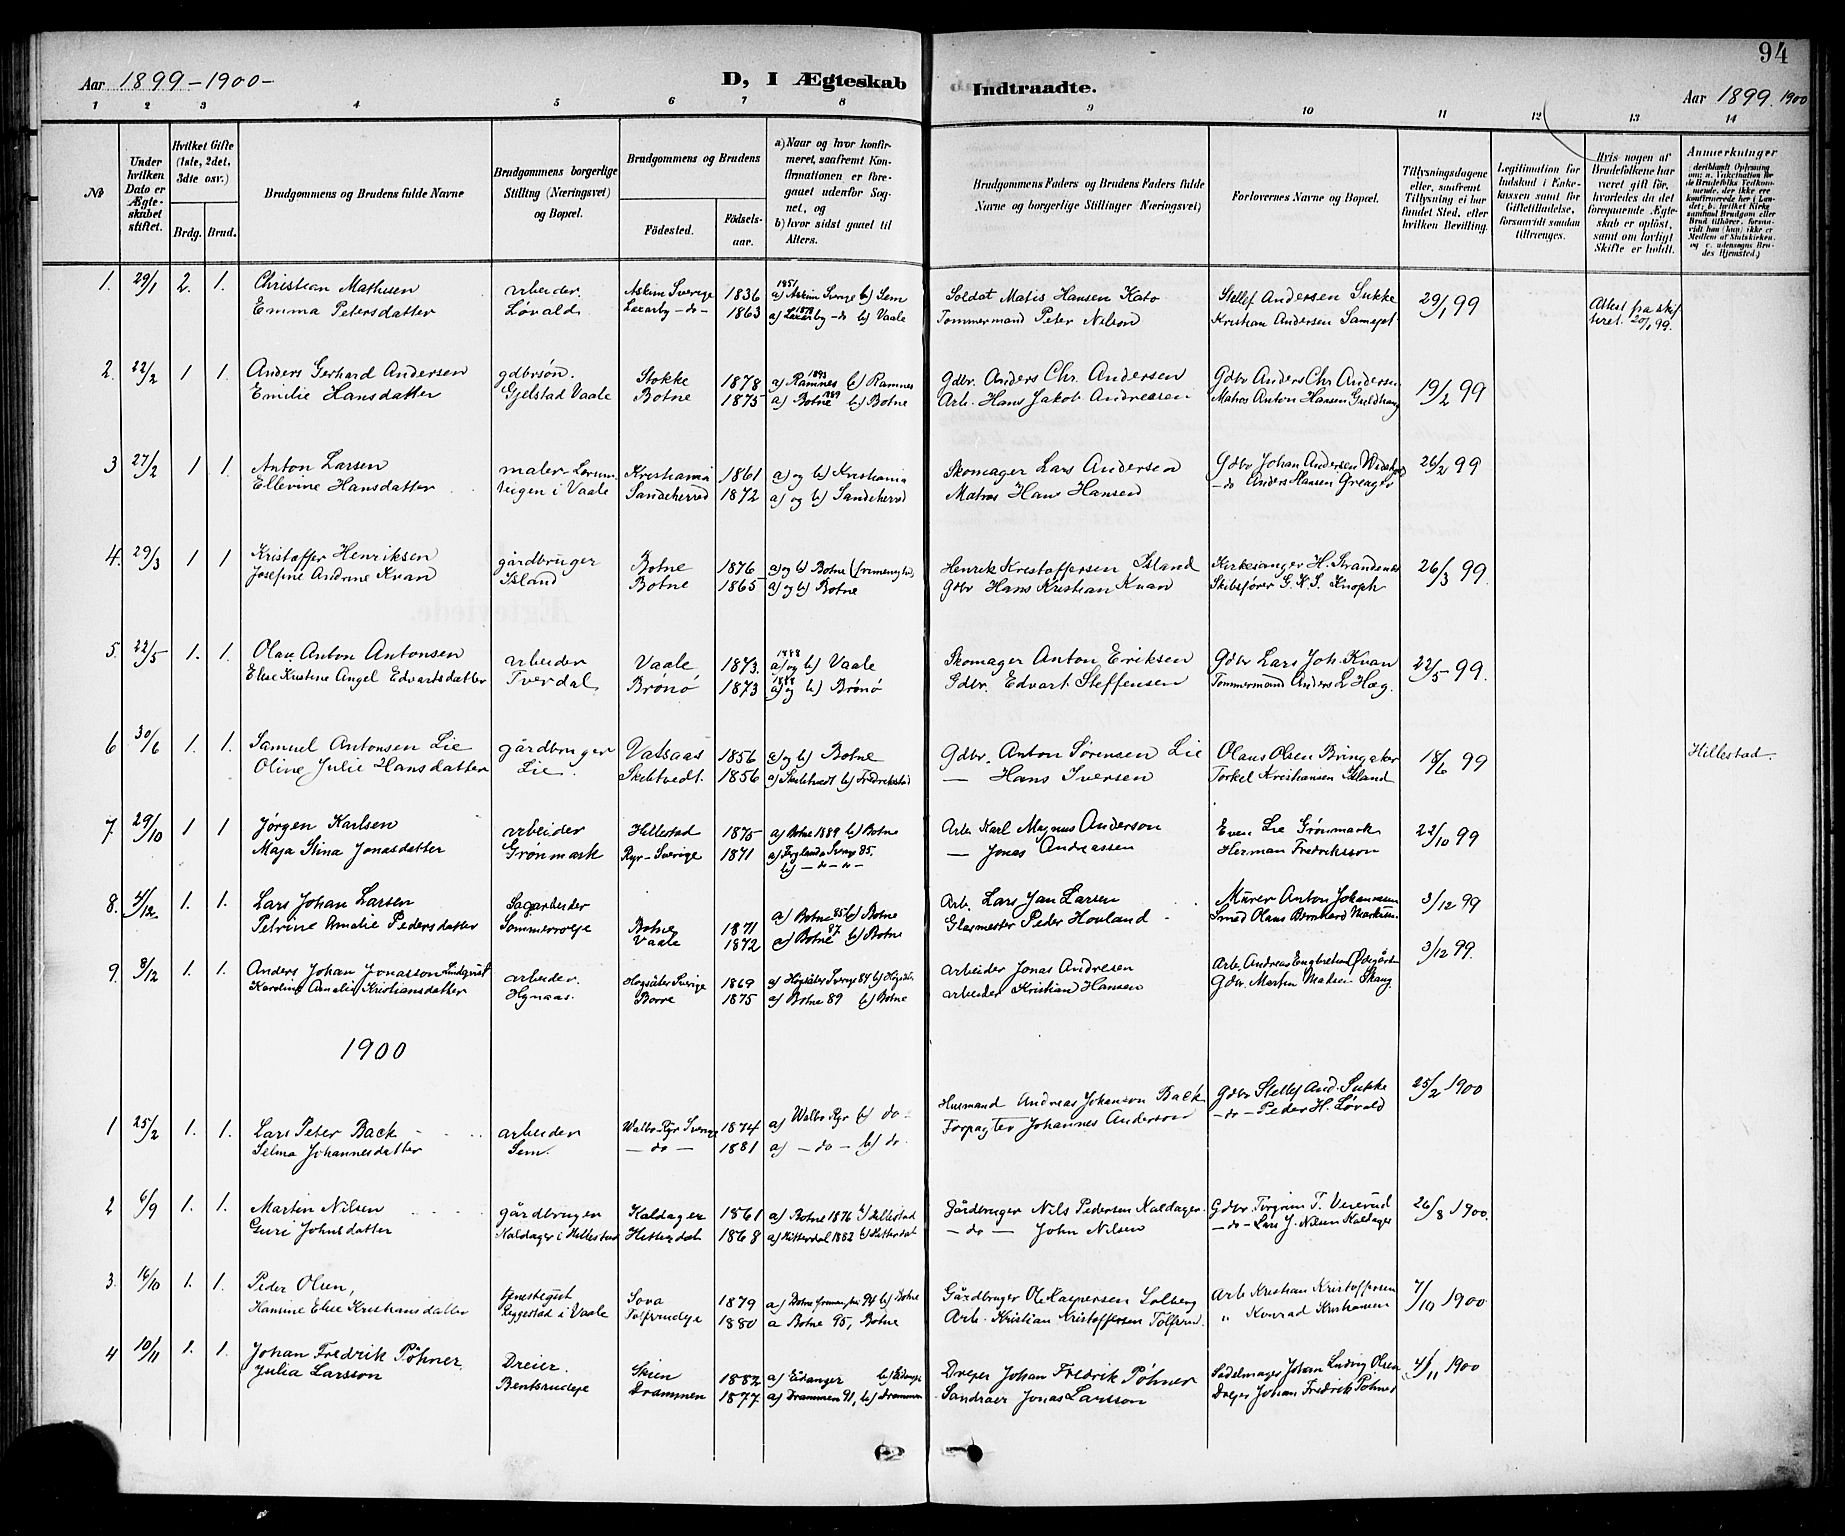 94
Aar 1899-1900-
D, I Ægteskab
Indtraadte.
Aar 1899. 1900
1 2 3 4 5 6 7 8 9 10 11 12 13 14
No
Under hvilken Dato er Ægteskabet stiftet.
Hvilket Gifte (1ste, 2det, 3dte osv.)
Brdg. Brud.
Brudgommens og Brudens fulde Navne
Brudgommens borgerlige Stilling (Næringsvei) og Bopæl.
Brudgommens og Brudens
Fødested. Fødselsaar.
a) Naar og hvor konfirmeret, saafremt Konfirmationen er foregaaet udenfor Sognet, og b) hvor sidst gaaet til Alters.
Brudgommens Faders og Brudens Faders fulde Navne og borgerlige Stillinger Næringsvei)
Forlovernes Navne og Bopæl.
Tillysningsdagene eller, saafremt Tillysning ei har fundet Sted, efter hvilken Bevilling.
Legitimation for Indskud i Enkekassen samt for Giftetilladelse, forsaavidt saadan tiltrænges.
Hvis nogen af Brudefolkene har været gift før, hvorledes da det foregaaende Ægteskab er opløst, samt om lovligt Skifte er holdt.
Anmerkninger
1. 29/1 2. 1. Christian Mathisen arbeider. Askim Sverige 1836 1851 a) Askim Sverige b) Sem Soldat Matis Hansen Kato Stellef Andersen Sukke 29/1 99 Attest fra skif
Emma Petersdatter Løvald Laxarby -do- 1863 a) Laxarby -do b) Vaale Tømmermand Peter Nilson Kristian Andersen teret 20/1 99.
2. 22/2 1 1. Anders Gerhard Andersen gdbrsøn. Stokke 1878 1893 a) Ramnes b) Ramnes Gdbr. Anders Chr. Andersen Gdbr Anders Chr. Andersen 19/2 99
Emilie Hansdatter Gjelstad Vaale Botne 1875 a) Botne 1889 b) Botne Arb. Hans Jakob Andreasen Matros Anton Hansen
3 27/2 1 1. Anton Larsen maler Kristiania 1861 a) og b) Kristiania Skomager Lars Andersen Gdbr Johan Andersen 26/2 99
Ellevine Hansdatter i Vaale Sandeherred 1872 a) og b) Sandeherred Matros Hans Hansen -do Anders Hansen
4. 29/3 1 1 Kristoffer Henriksen gårdbruger Botne 1876 a) og b) Botne Henrik Kristoffersen Island Kirkesanger H. Strandenæs 26/3 99.
Josefine Andrine Kvan Island Botne 1865 a) og b) Botne Gdbr Hans Kristian Kvan Skibsfører G. K. S. Knoph
5. 22/5 1. 1. Olav Anton Antonsen arbeider Vaale 1873. 1888 a) og b) Vaale Skomager Anton Eriksen Gdbr Lars Joh. Kvan 22/5 99.
Elise Kristine Angel Edvartsdatter Tverdal Brønø 1873 a) og b) Brønø Gdbr. Edvart Steffensen Tømmermand Anders L Hæg.
6 30/6 1. 1. Samuel Antonsen Lie gårdbruger Vatsaas 1856 a) og b) Botne Gdbr. Anton Sørensen Lie Olaus Olsen Bringaker 18/6 99 Hillestad.
Oline Julie Hansdatter Lie. Skeltvedt. 1856 a) Skeltvedt b) Fredrikstad — Hans Iversen Torkel Kristiansen Island
7 29/10 1 1 Jørgen Karlsen arbeider Hillestad 1875 a) Botne 1889 b) Botne Arb. Karl Magnus Anderson Even Lie Grønmark 22/10 99
Maja Stina Jonasdatter Grønmark Ryr-Sverige 1871 a) Sverg 85. b) -do- — Jonas Andreassen Herman Fredriksson
8. 4/12. 1. 1. Lars Johan Larsen Sagarbeider Botne 1871 a) Botne 85 b) Botne Arb. Lars Jan Larsen Murer Anton Johansen 3/12 99
Petrine Amalie Pedersdatter Sommerroeje Vaale 1872 a) Botne 87 b) Botne Glasmester Peder Hovland - Smed Olaus Bernhard
9. 8/12 1. 1. Anders Johan Jonasson Lindquist arbeider. Høgsäter Sverige 1869 a) Høgsäter Sverige 84 b) arbeider Jonas Andresen Arb. Andreas Engbretsen Ødegården 3/12 99.
Karoline Amalie Kristiansdatter Hynaas. Borre 1875 a) Botne 89 b) Botne arbeider Kristian Hansen Gdbr. Martin Madsen Skaug
1900
1 25/2 1. 1. Lars Peter Back arbeider Walbo-Ryr Sverige 1874 a) Walbo-Ryr b) do. Husmand Andreas Johanson Back Gdbr Stellef And. Sukke 25/2 1900
Selma Johannesdatter Sem. -do- 1881 a) -do- b) do. Forpagter Johannes Anderson -do- Peder H. Løvald
2 6/9 1. 1. Martin Nilsen gårdbruger Kaldager 1861 a) Botne 1876 b) Hillestad Gårdbruger Nils Pedersen Kaldager Gdbr Torgrim T. 26/8 1900.
Guri Johnsdatter Kaldager i Hillestad Hitterdal 1868 a) Hitterdal 1882 b) Hitterdal -do- John Nilsen -do- Lars J. Nilsen Kaldager
3. 16/10 1. 1. Peder Olsen, tjenestegut Sova 1879 a) Botne 94 b) Botne Gårdbruger Ole Kaspersen Solberg Arb Kristian Kristoffersen 7/10 1900
Hansine Elise Kristiansdatter Ryggestad i Vaale Tolfsrudeje 1880 a Botne 95, Botne Arb. Kristian Kristoffersen Tolfsrud. " Konrad Kristiansen
4 10/11 1. 1. Johan Fredrik Pöhner Dreier. Skien 1882 a) Eidanger b) Eidanger Dreyer Johan Fredrik Pöhner Sadelmager Johan Ludvig Olsen 4/11 1900
Julia Larsson Bentsrudeje Drammen 1877. a) Drammen 91, b) Drammen Jonas Larsson Dreyer Johan Fredrik Pöhner